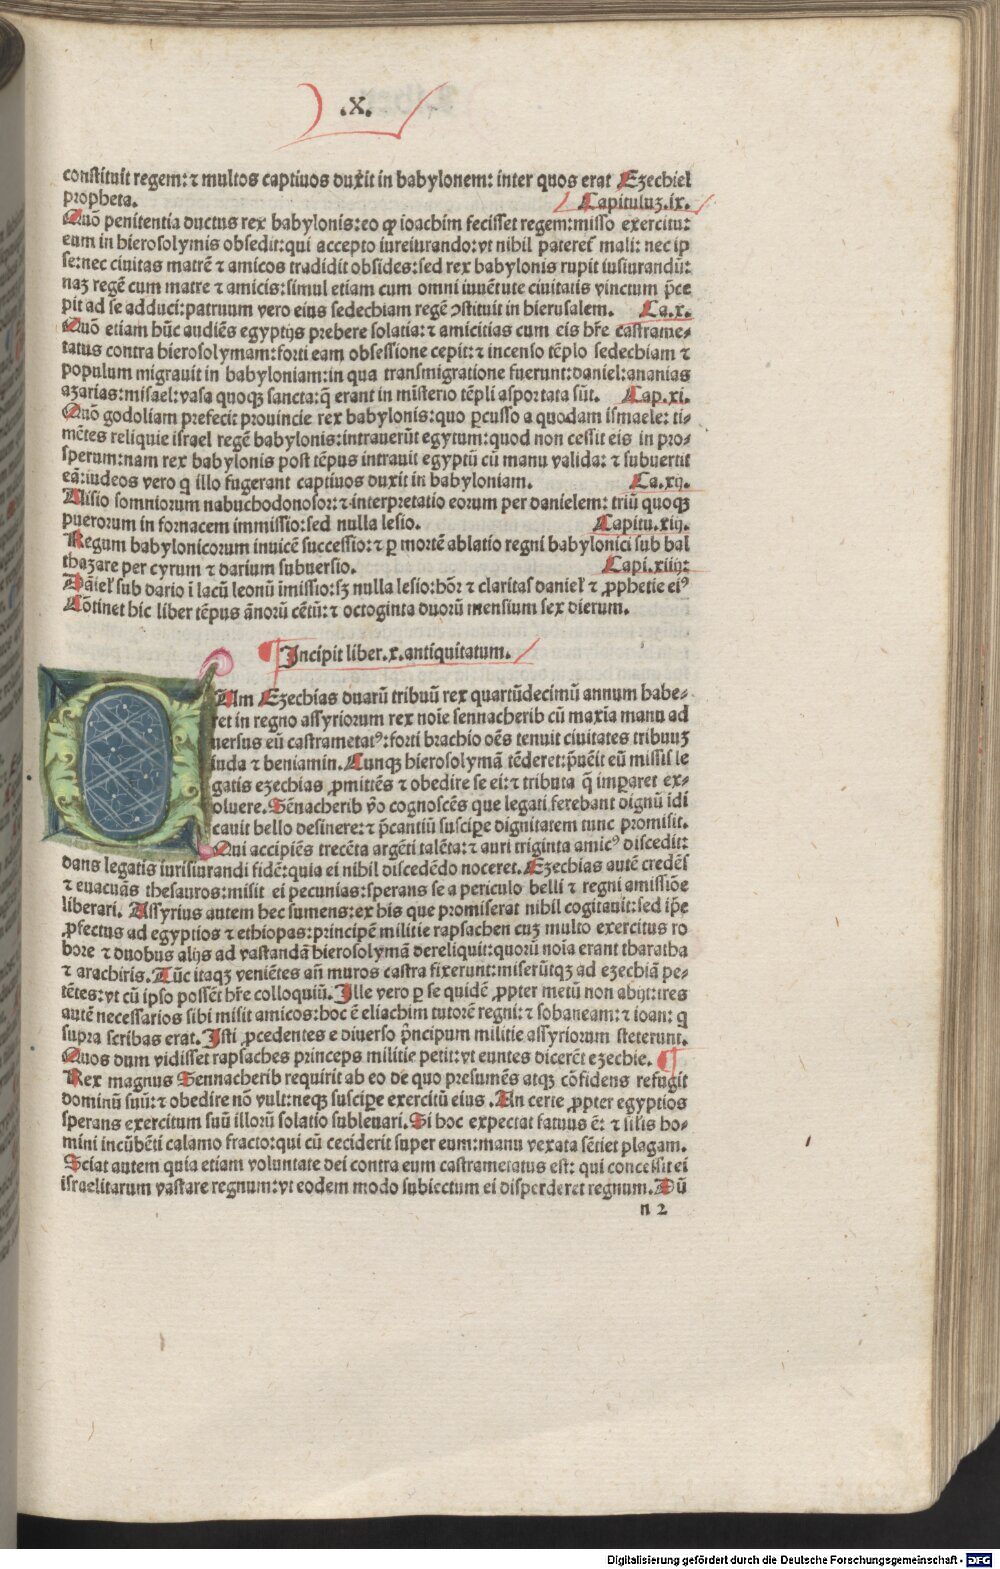 .X.
constituit regem: ⁊ multos captiuos duxit in babylonem: inter quos erat Ezechiel
propheta. Capituluꝫ.ix.
Quō penitentia ductus rex babylonis:eo ꝙ ioachim fecisset regem:misso exercitu:
eum in hierosolymis obsedit:qui accepto iureiurando:vt nihil pateret᷑ mali: nec ip
se:nec ciuitas matrē ⁊ amicos tradidit obsides:sed rex babylonis rupit iusiurandū:
naꝫ regē cum matre ⁊ amicis:simul etiam cum omni iuuētute ciuitatis vinctum p̄ce
pit ad se adduci:patruum vero eius sedechiam regē ↄstituit in hierusalem. Ca.x.
Quō etiam hūc audiēs egyptijs prebere solatia:⁊ amicitias cum eis hr̄e castrame⸗
tatus contra hierosolymam:forti eam obsessione cepit:⁊ incenso tēplo sedechiam ⁊
populum migrauit in babyloniam:in qua transmigratione fuerunt:daniel:ananias
azarias:misael:vasa quoqꝫ sancta:q̄ erant in mīsterio tēpli asportata sūt. Cap.xi.
Quō godoliam prefecit prouincie rex babylonis:quo ꝑcusso a quodam ismaele: ti⸗
mētes reliquie israel regē babylonis:intrauerūt egytum:quod non cessit eis in pro⸗
sperum:nam rex babylonis post tēpus intrauit egyptū cū manu valida: ⁊ subuertit
eā:iudeos vero q illo fugerant captiuos duxit in babyloniam. Ca.xij.
Uisio somniorum nabuchodonosor:⁊ interpretatio eorum per danielem: triū quoqꝫ
puerorum in fornacem immissio:sed nulla lesio. Capitu.xiij.
Regum babylonicorum inuicē successio:⁊ ꝑ mortē ablatio regni babylonici sub bal
thazare per cyrum ⁊ darium subuersio. Capi.xiiij:
Dāiel sub dario ī lacū leonū īmissio:sꝫ nulla lesio:hōr ⁊ claritas daniel ⁊ ꝓphetie eiꝰ
Cōtinet hic liber tēpus ānorū cētū: ⁊ octoginta duorū mensium sex dierum.
¶ Incipit liber.x.antiquitatum.
QUm Ezechias duarū tribuū rex quartūdecimū annum habe⸗
ret in regno assyriorum rex noīe sennacherib cū maxīa manu ad
uersus eū castrametatꝰ:forti brachio oēs tenuit ciuitates tribuuꝫ
iuda ⁊ beniamin. Cunqꝫ hierosolymā tēderet:p̄uēit eū missis le
gatis ezechias ꝓmittēs ⁊ obedire se ei:⁊ tributa q̄ imꝑaret ex⸗
oluere. Sēnacherib ꝟo cognoscēs que legati ferebant dignū idī
cauit bello desinere:⁊ p̄cantiū suscipe dignitatem tunc promisit.
Qui accipiēs trecēta argēti talēta:⁊ auri triginta amicꝰ discedit:
dans legatis iurisiurandi fidē:quia ei nihil discedēdo noceret. Ezechias autē credēs
⁊ euacuās thesauros:misit ei pecunias:sperans se a periculo belli ⁊ regni amissiōe
liberari. Assyrius autem hec sumens:ex his que promiserat nihil cogitauit:sed ip̄e
ꝓfectus ad egyptios ⁊ ethiopas:principē militie rapsachen cuꝫ multo exercitus ro
bore ⁊ duobus alijs ad vastandā hierosolymā dereliquit:quorū noīa erant tharatha
⁊ arachiris. Tūc itaqꝫ veniētes añ muros castra fixerunt:miserūtqꝫ ad ezechiā pe⸗
tētes:vt cū ipso possēt hr̄e colloquiū. Ille vero ꝑ se quidē ꝓpter metū non abijt:tres
autē necessarios sibi misit amicos:hoc ē eliachim tutorē regni:⁊ sobaneam:⁊ ioan: q
supra scribas erat. Isti ꝓcedentes e diuerso p̄ncipum militie assyriorum steterunt.
Quos dum vidisset rapsaches princeps militie petit:vt euntes dicerēt ezechie. ¶
Rex magnus Sennacherib requirit ab eo de quo presumēs atqꝫ cōfidens refugit
dominū suū:⁊ obedire nō vult:neqꝫ suscipe exercitū eius. An certe ꝓpter egyptios
sperans exercitum suū illorū solatio subleuari. Si hoc expectat fatuus ē: ⁊ silis ho⸗
mini incūbēti calamo fracto:qui cū ceciderit super eum:manu vexata sētiet plagam.
Sciat autem quia etiam voluntate dei contra eum castrametatus est: qui concessit ei
israelitarum vastare regnum:vt eodem modo subiectum ei disperderet regnum. Dū
n 2
Digitalisierung gefördert durch die Deutsche Forschungsgemeinschaft - DFG